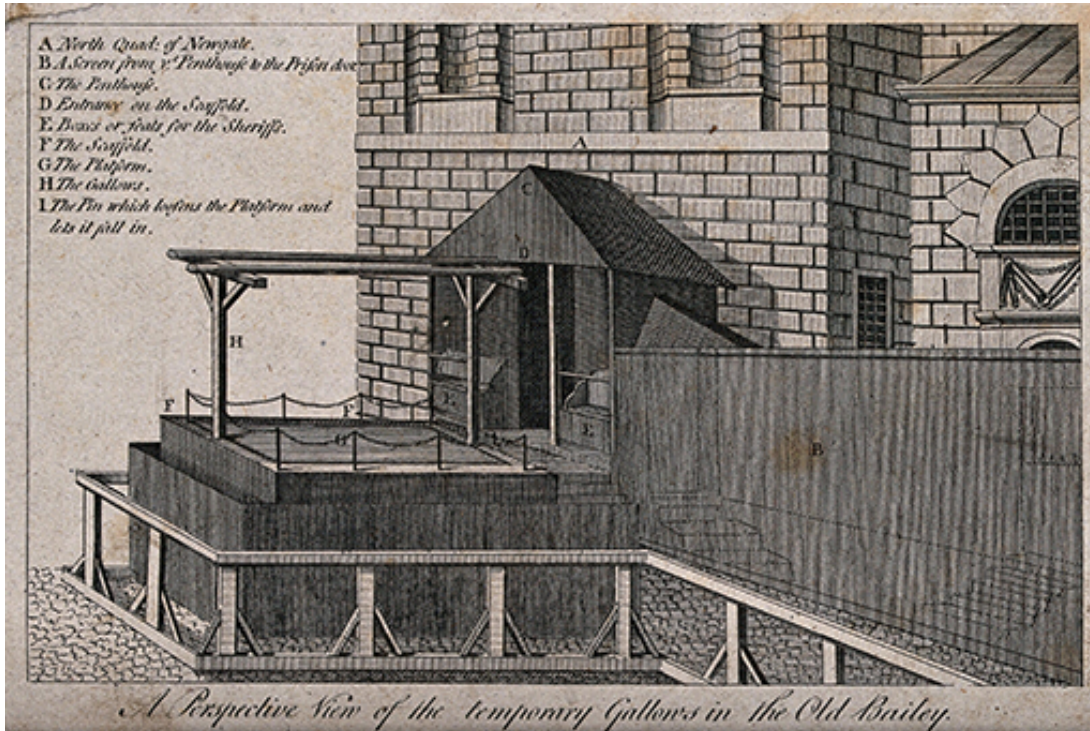 A North Quad: of Newgate.
B A Screen from yᵉ Penthouse to the Prison door
C The Penthouse.
D Entrance on the Scaffold.
E Boxes or seats for the Sheriffs.
F The Scaffold.
G The Platform.
H The Gallows.
I The Pin which loosens the Platform and
lets it fall in.
A
C
D
H
F
F
E
G
I
E
B
A Perspective View of the temporary Gallows in the Old Bailey.